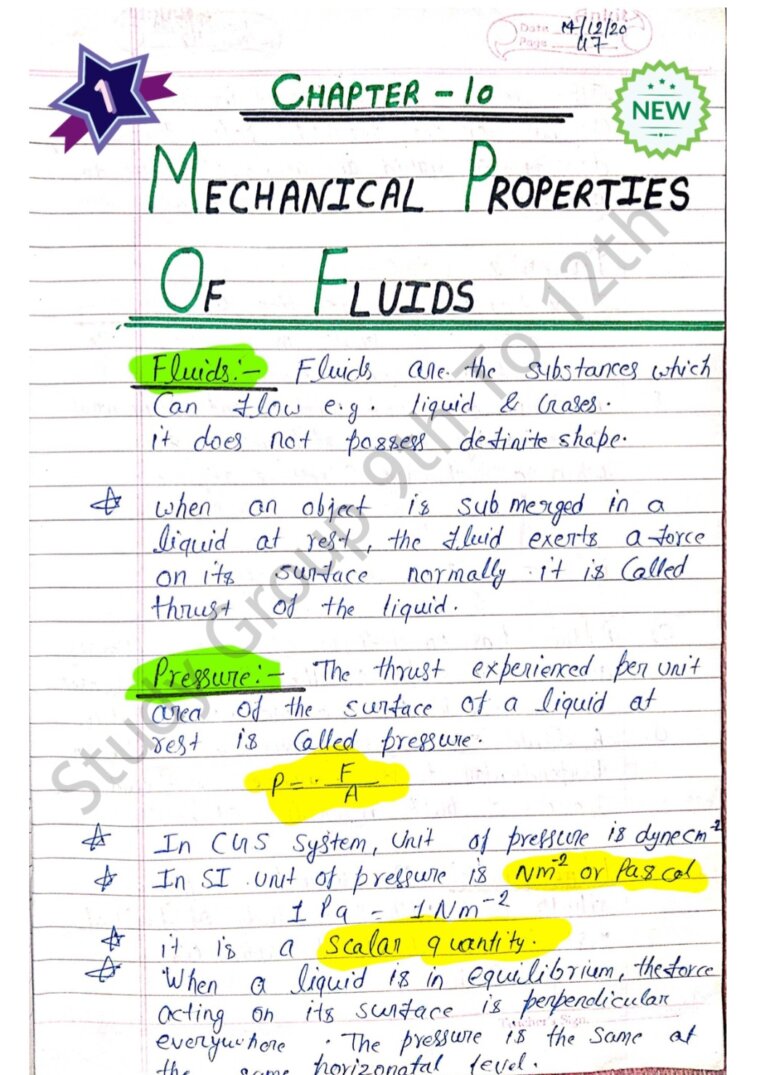 Date 14/12/20
Page 47
1
CHAPTER - 10
NEW
MECHANICAL PROPERTIES
OF FLUIDS
Fluids:- Fluids are the substances which
Can flow e.g. liquid & Gases.
it does not possess definite shape.
when an object is submerged in a
liquid at rest, the fluid exerts a force
on its surface normally it is Called
thrust of the liquid.
Pressure:- The thrust experienced per unit
area of the surface of a liquid at
rest is Called pressure.
P = F/A
In CGS System, Unit of pressure is dynecm⁻²
In SI unit of pressure is Nm⁻² or Pascal
1 Pa = 1 Nm⁻²
it is a scalar quantity.
When a liquid is in equilibrium, the force
acting on its surface is perpendicular
everywhere. The pressure is the same at
the same horizonatal level.
Study Group 9th To 12th